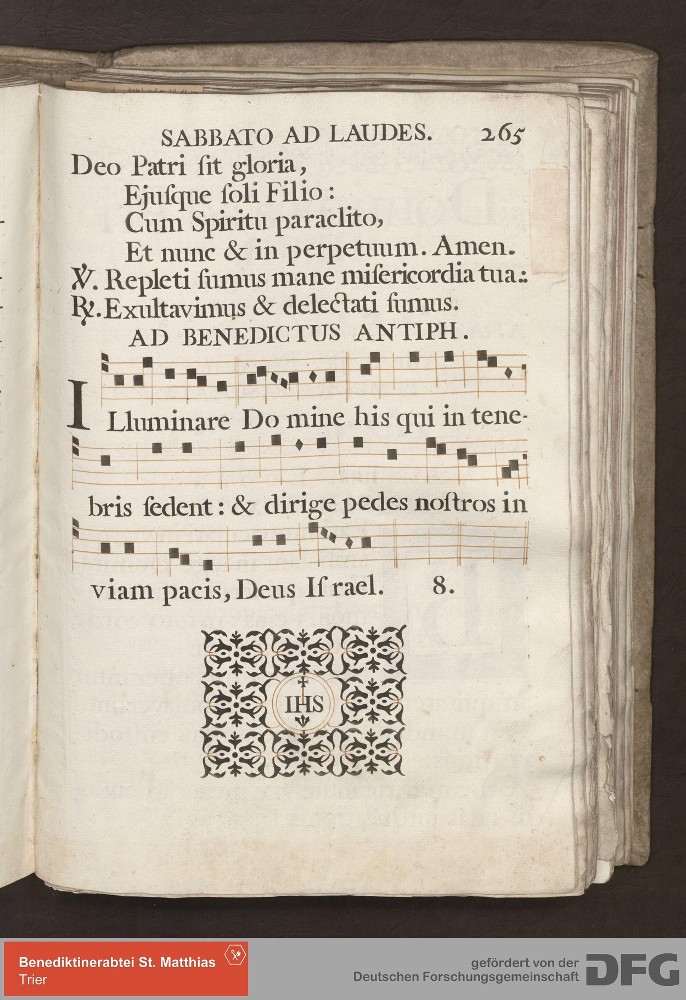 SABBATO AD LAUDES. 265
Deo Patri ſit gloria,
Ejuſque ſoli Filio:
Cum Spiritu paraclito,
Et nunc & in perpetuum. Amen.
℣. Repleti ſumus mane miſericordia tua.:
℟. Exultavimus & delectati ſumus.
AD BENEDICTUS ANTIPH.
ILluminare Do mine his qui in tene-
bris ſedent: & dirige pedes noſtros in
viam pacis, Deus Iſ rael. 8.
IHS
Benediktinerabtei St. Matthias
Trier
gefördert von der
Deutschen Forschungsgemeinschaft
DFG